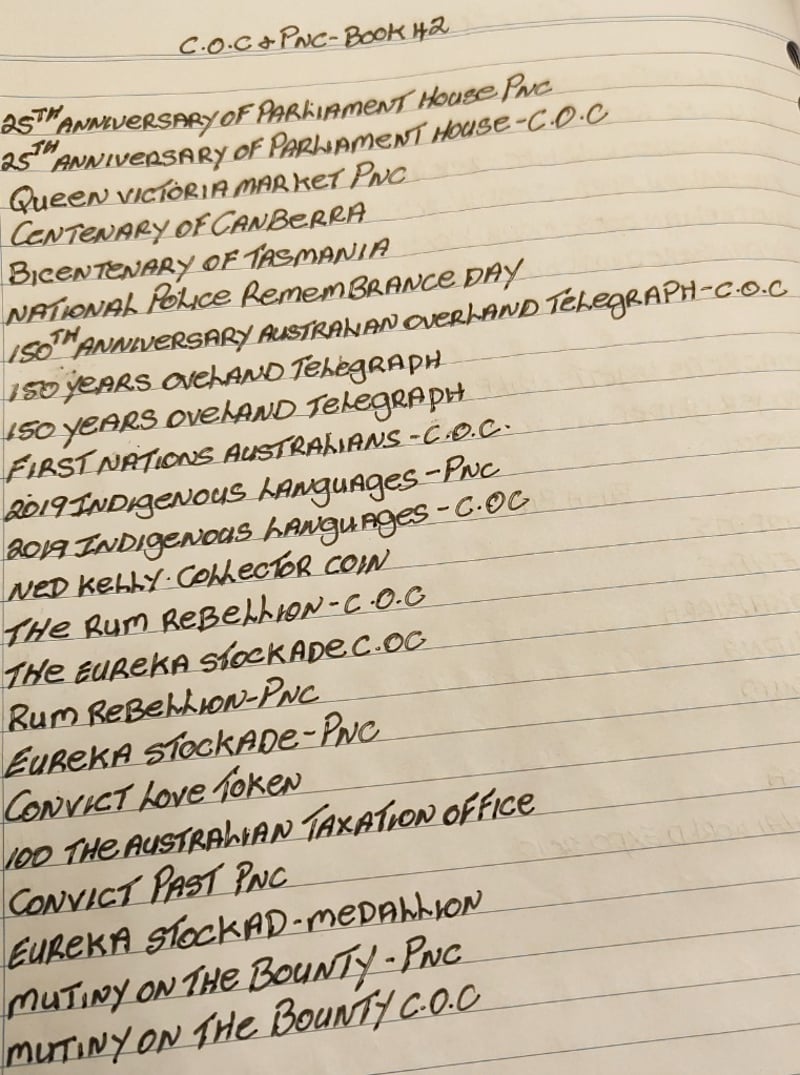 C.O.C & PNC-BOOK #2
25TH ANNIVERSARY OF PARLIAMENT HOUSE PNC
25TH ANNIVERSARY OF PARLIAMENT HOUSE-C.O.C
QUEEN VICTORIA MARKET PNC
CENTENARY OF CANBERRA
BICENTENARY OF TASMANIA
NATIONAL POLICE REMEMBRANCE DAY
150TH ANNIVERSARY AUSTRALIAN OVERLAND TELEGRAPH-C.O.C
150 YEARS OVELAND TELEGRAPH
150 YEARS OVELAND TELEGRAPH
FIRST NATIONS AUSTRALIANS-C.O.C.
2019 INDIGENOUS LANGUAGES-PNC
2019 INDIGENOUS LANGUAGES-C.OC
NED KELLY. COLLECTOR COIN
THE RUM REBELLION-C.O.C
THE EUREKA STOCKADE C.OC
RUM REBELLION-PNC
EUREKA STOCKADE-PNC
CONVICT LOVE TOKEN
100 THE AUSTRALIAN TAXATION OFFICE
CONVICT PAST PNC
EUREKA STOCKAD-MEDALLION
MUTINY ON THE BOUNTY-PNC
MUTINY ON THE BOUNTY C.O.C